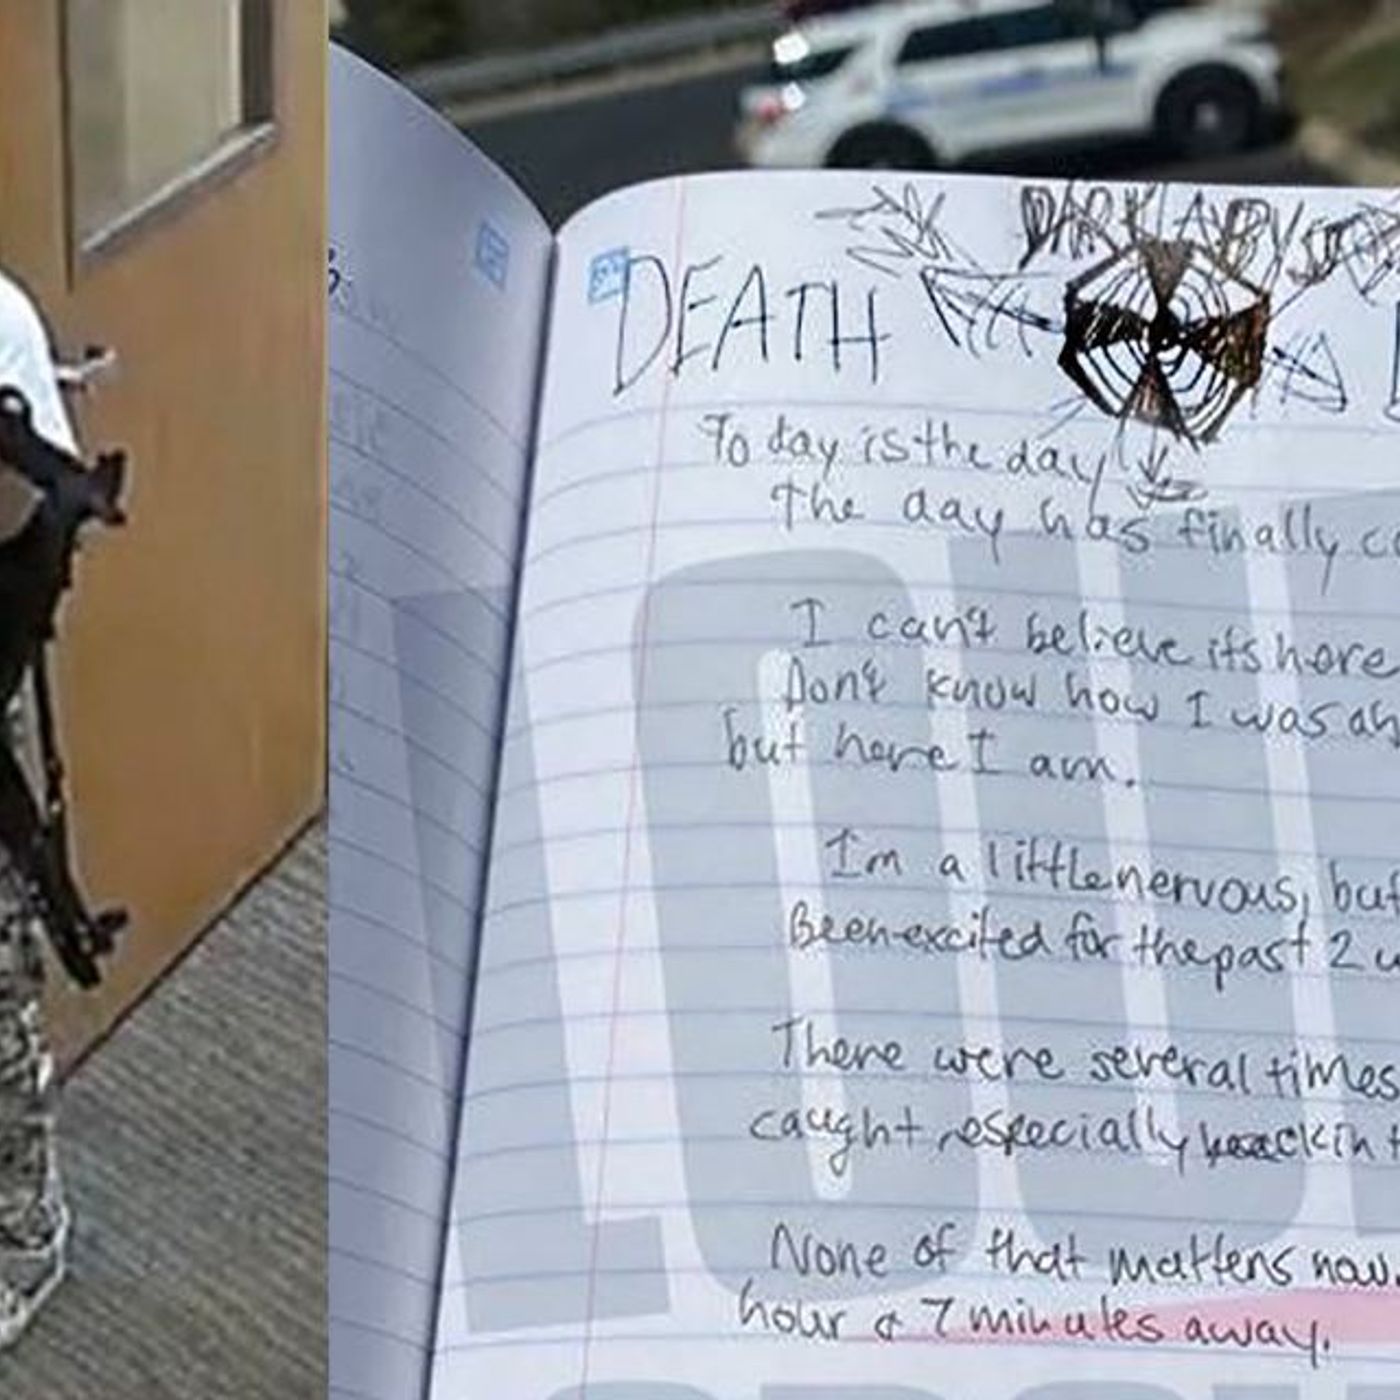 DARK ABYSS
DEATH
Today is the day
The day has finally
I can't believe its here
Don't know how I was
but here I am.
I'm a little nervous, but
Been excited for the past 2
There were several times
caught, especially back in
None of that matters now.
hour & 7 minutes away.